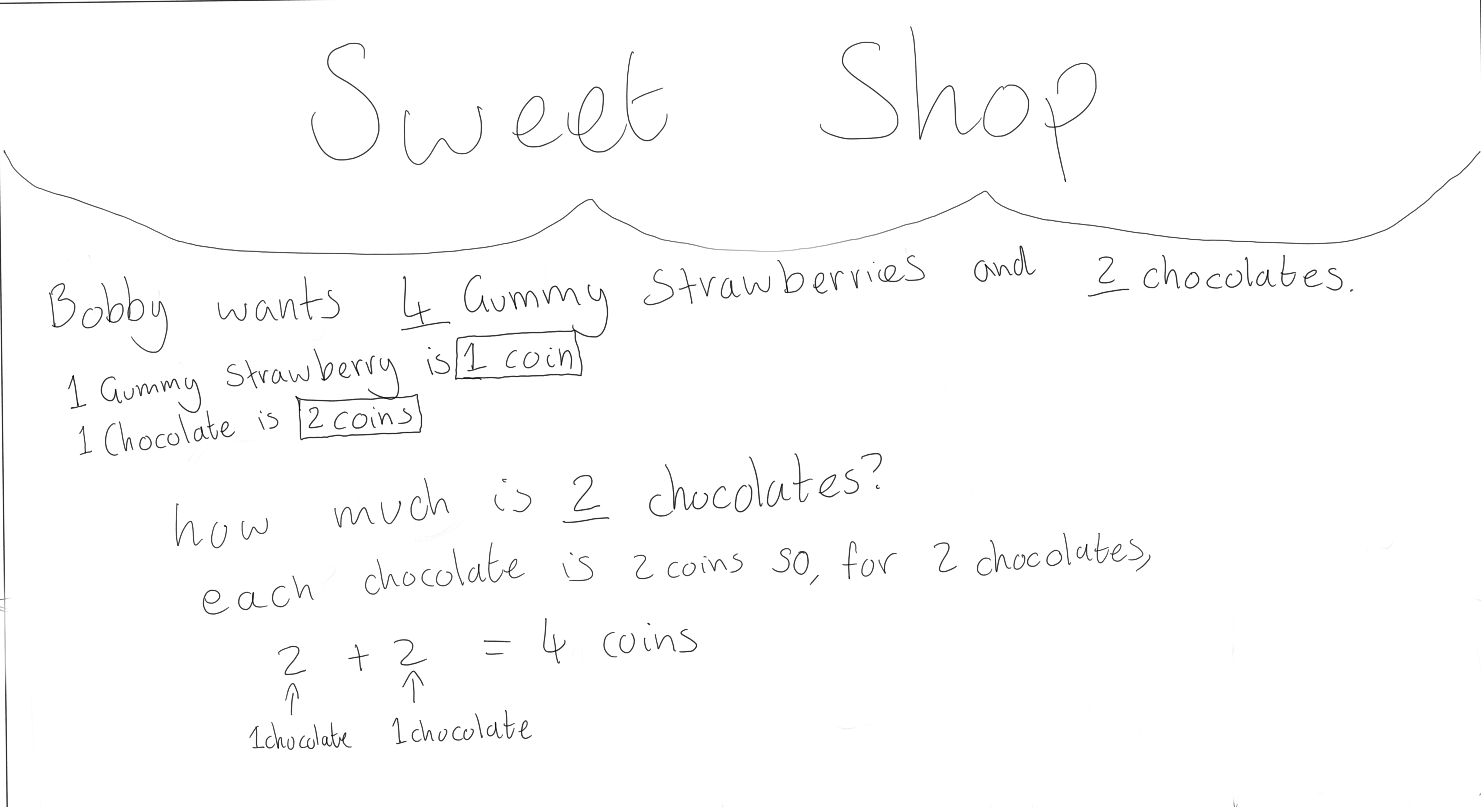 Sweet Shop
Bobby wants 4 Gummy Strawberries and 2 chocolates.
1 Gummy Strawberry is 1 coin
1 Chocolate is 2 coins
how much is 2 chocolates?
each chocolate is 2 coins so, for 2 chocolates,
2 + 2 = 4 coins
↑ ↑
1 chocolate 1 chocolate